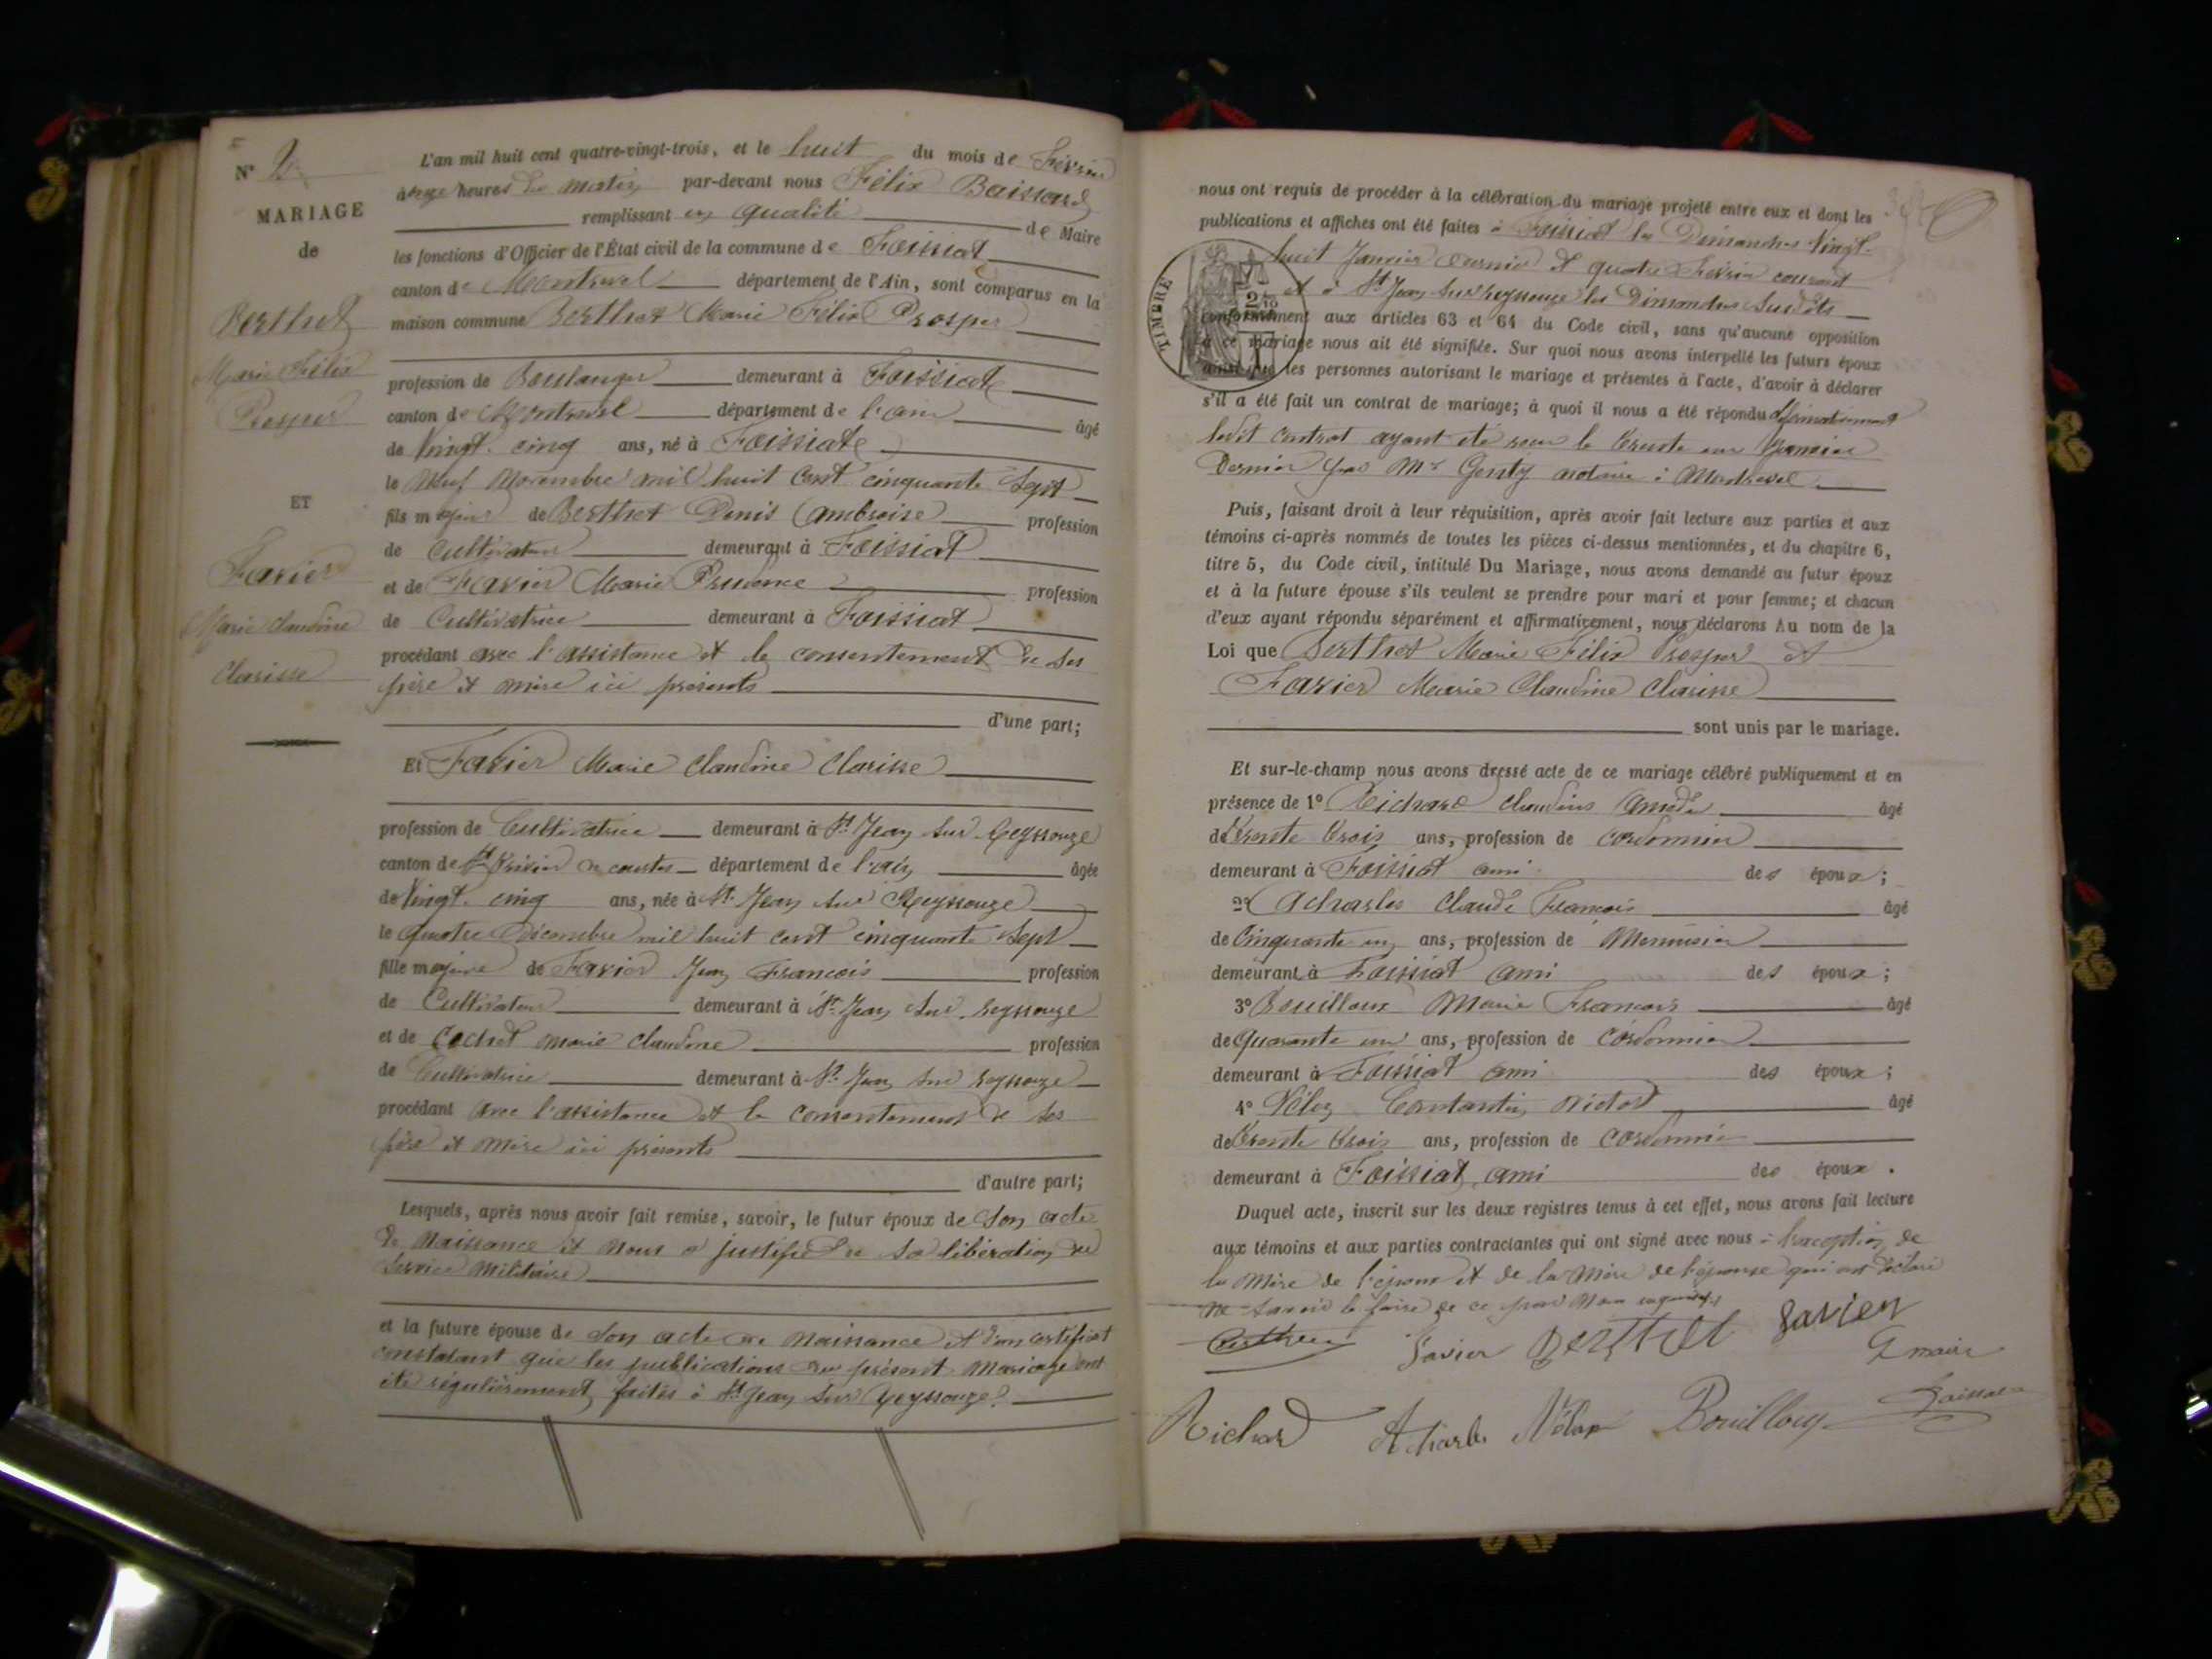 N° 2
MARIAGE
de
Berthet
Marie Félix
Prosper
ET
Favier
Marie Claudine
Clarisse
L'an mil huit cent quatre-vingt-trois, et le huit du mois de Février
à onze heures du matin par-devant nous Félix Baissard
remplissant en qualité de Maire
les fonctions d'Officier de l'État civil de la commune de Foissiat
canton de Montrevel département de l'Ain, sont comparus en la
maison commune Berthet Marie Félix Prosper
profession de Boulanger demeurant à Foissiat
canton de Montrevel département de l'ain âgé
de Vingt cinq ans, né à Foissiat
le Neuf Novembre mil huit cent cinquante Sept
fils majeur de Berthet Denis Ambroise profession
de Cultivateur demeurant à Foissiat
et de Favier Marie Prudence profession
de Cultivatrice demeurant à Foissiat
procédant avec l'assistance et le consentement de ses
père et mère ici présents
d'une part;
Et Favier Marie Claudine Clarisse
profession de Cultivatrice demeurant à St Jean sur Reyssouze
canton de St Trivier de courtes département de l'ain âgée
de Vingt cinq ans, née à St Jean sur Reyssouze
le quatre Décembre mil huit cent cinquante Sept
fille majeure de Favier Jean François profession
de Cultivateur demeurant à St Jean sur Reyssouze
et de Cochet Marie Claudine profession
de Cultivatrice demeurant à St Jean sur Reyssouze
procédant avec l'assistance et le consentement de ses
père et mère ici présents
d'autre part;
Lesquels, après nous avoir fait remise, savoir, le futur époux de son acte
de Naissance et nous a justifié de sa libération du
Service Militaire
et la future épouse de son acte de Naissance et d'un certificat
constatant que les publications du présent Mariage ont
été régulièrement faites à St Jean sur Reyssouze
nous ont requis de procéder à la célébration du mariage projeté entre eux et dont les
publications et affiches ont été faites à Foissiat les Dimanches Vingt-
huit Janvier dernier et quatre Février courant
et à St Jean sur Reyssouze les Dimanches Susdits
TIMBRE
conformément aux articles 63 et 64 du Code civil, sans qu'aucune opposition
à ce mariage nous ait été signifiée. Sur quoi nous avons interpellé les futurs époux
ainsi que les personnes autorisant le mariage et présentes à l'acte, d'avoir à déclarer
s'il a été fait un contrat de mariage; à quoi il nous a été répondu affirmativement
ledit contrat ayant été reçu le trente un Janvier
Dernier par Me Genty notaire à Montrevel
Puis, faisant droit à leur réquisition, après avoir fait lecture aux parties et aux
témoins ci-après nommés de toutes les pièces ci-dessus mentionnées, et du chapitre 6,
titre 5, du Code civil, intitulé Du Mariage, nous avons demandé au futur époux
et à la future épouse s'ils veulent se prendre pour mari et pour femme; et chacun
d'eux ayant répondu séparément et affirmativement, nous déclarons Au nom de la
Loi que Berthet Marie Félix Prosper et
Favier Marie Claudine Clarisse
sont unis par le mariage.
Et sur-le-champ nous avons dressé acte de ce mariage célébré publiquement et en
présence de 1° Richard Claudius Amédé âgé
de trente trois ans, profession de cordonnier
demeurant à Foissiat ami des époux;
2° Acharles Claude François âgé
de Cinquante un ans, profession de Menuisier
demeurant à Foissiat ami des époux;
3° Bouilloux Marie François âgé
de Quarante un ans, profession de cordonnier
demeurant à Foissiat ami des époux;
4° Constantin Victor âgé
de trente trois ans, profession de cordonnier
demeurant à Foissiat ami des époux.
Duquel acte, inscrit sur les deux registres tenus à cet effet, nous avons fait lecture
aux témoins et aux parties contractantes qui ont signé avec nous à l'exception de
la Mère de l'époux et de la Mère de l'épouse qui ont déclaré
ne savoir le faire de ce par nous enquises
Berthet Favier Berthet Favier
Le maire
Richard Acharles Bouilloux Baissard